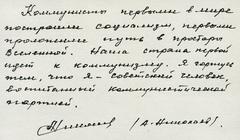 Коммунисты первыми в мире
построили социализм, первыми
проложили путь в просторы
Вселенной. Наша страна первой
идет к коммунизму. Я горжусь
тем, что я - советский человек,
воспитанный коммунистической
партией.
(А. Николаев)